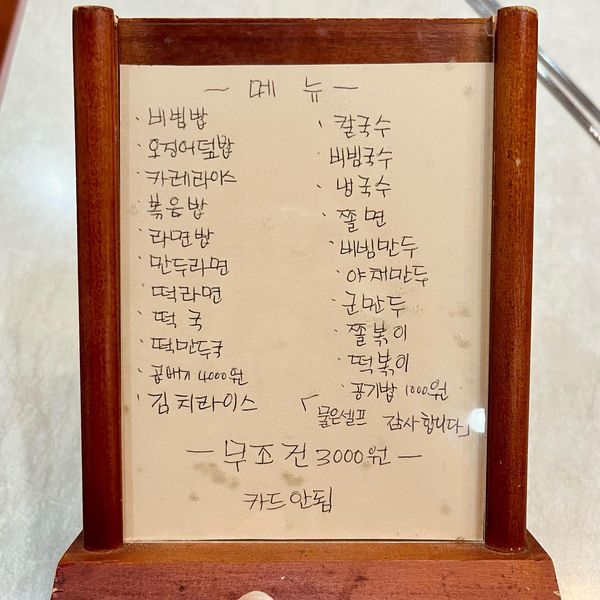 - 메 뉴 -
· 비빔밥
· 오징어덮밥
· 카레라이스
· 볶음밥
· 라면밥
· 만두라면
· 떡라면
· 떡 국
· 떡만두국
· 곱배기 4000원
· 김치라이스
· 칼국수
· 비빔국수
· 냉국수
· 쫄면
· 비빔만두
· 야채만두
· 군만두
· 쫄볶이
· 떡볶이
· 공기밥 1000원
「물은셀프 감사합니다」
- 무조건 3000원 -
카드안됨